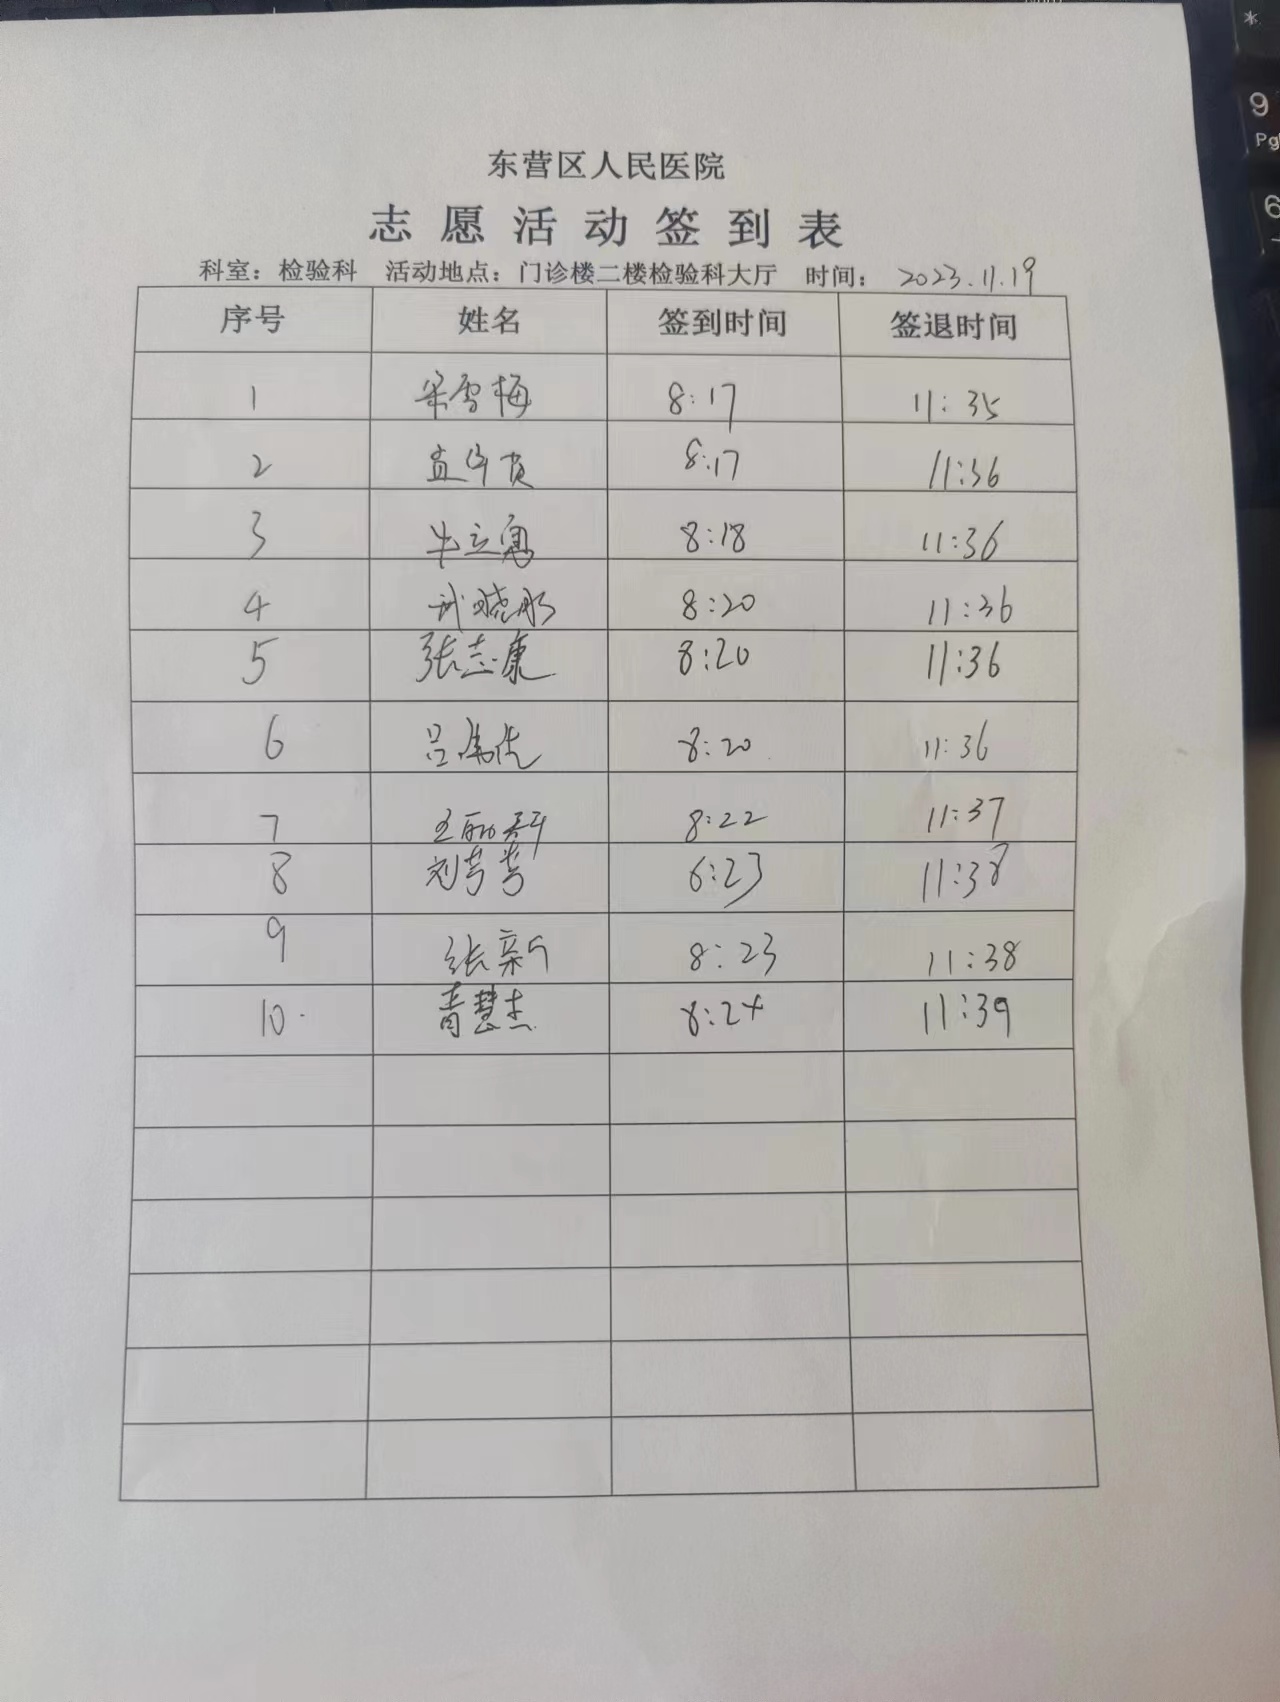 东营区人民医院
志愿活动签到表
科室：检验科 活动地点：门诊楼二楼检验科大厅 时间：2023.11.19
序号 姓名 签到时间 签退时间
1 宋雪梅 8:17 11:35
2 8:17 11:36
3 牛立 8:18 11:36
4 武晓彤 8:20 11:36
5 张志康 8:20 11:36
6 吕 8:20 11:36
7 王丽 8:22 11:37
8 刘芳芳 6:23 11:38
9 张新 8:23 11:38
10. 青慧杰 8:24 11:39
*
9
Pg
6